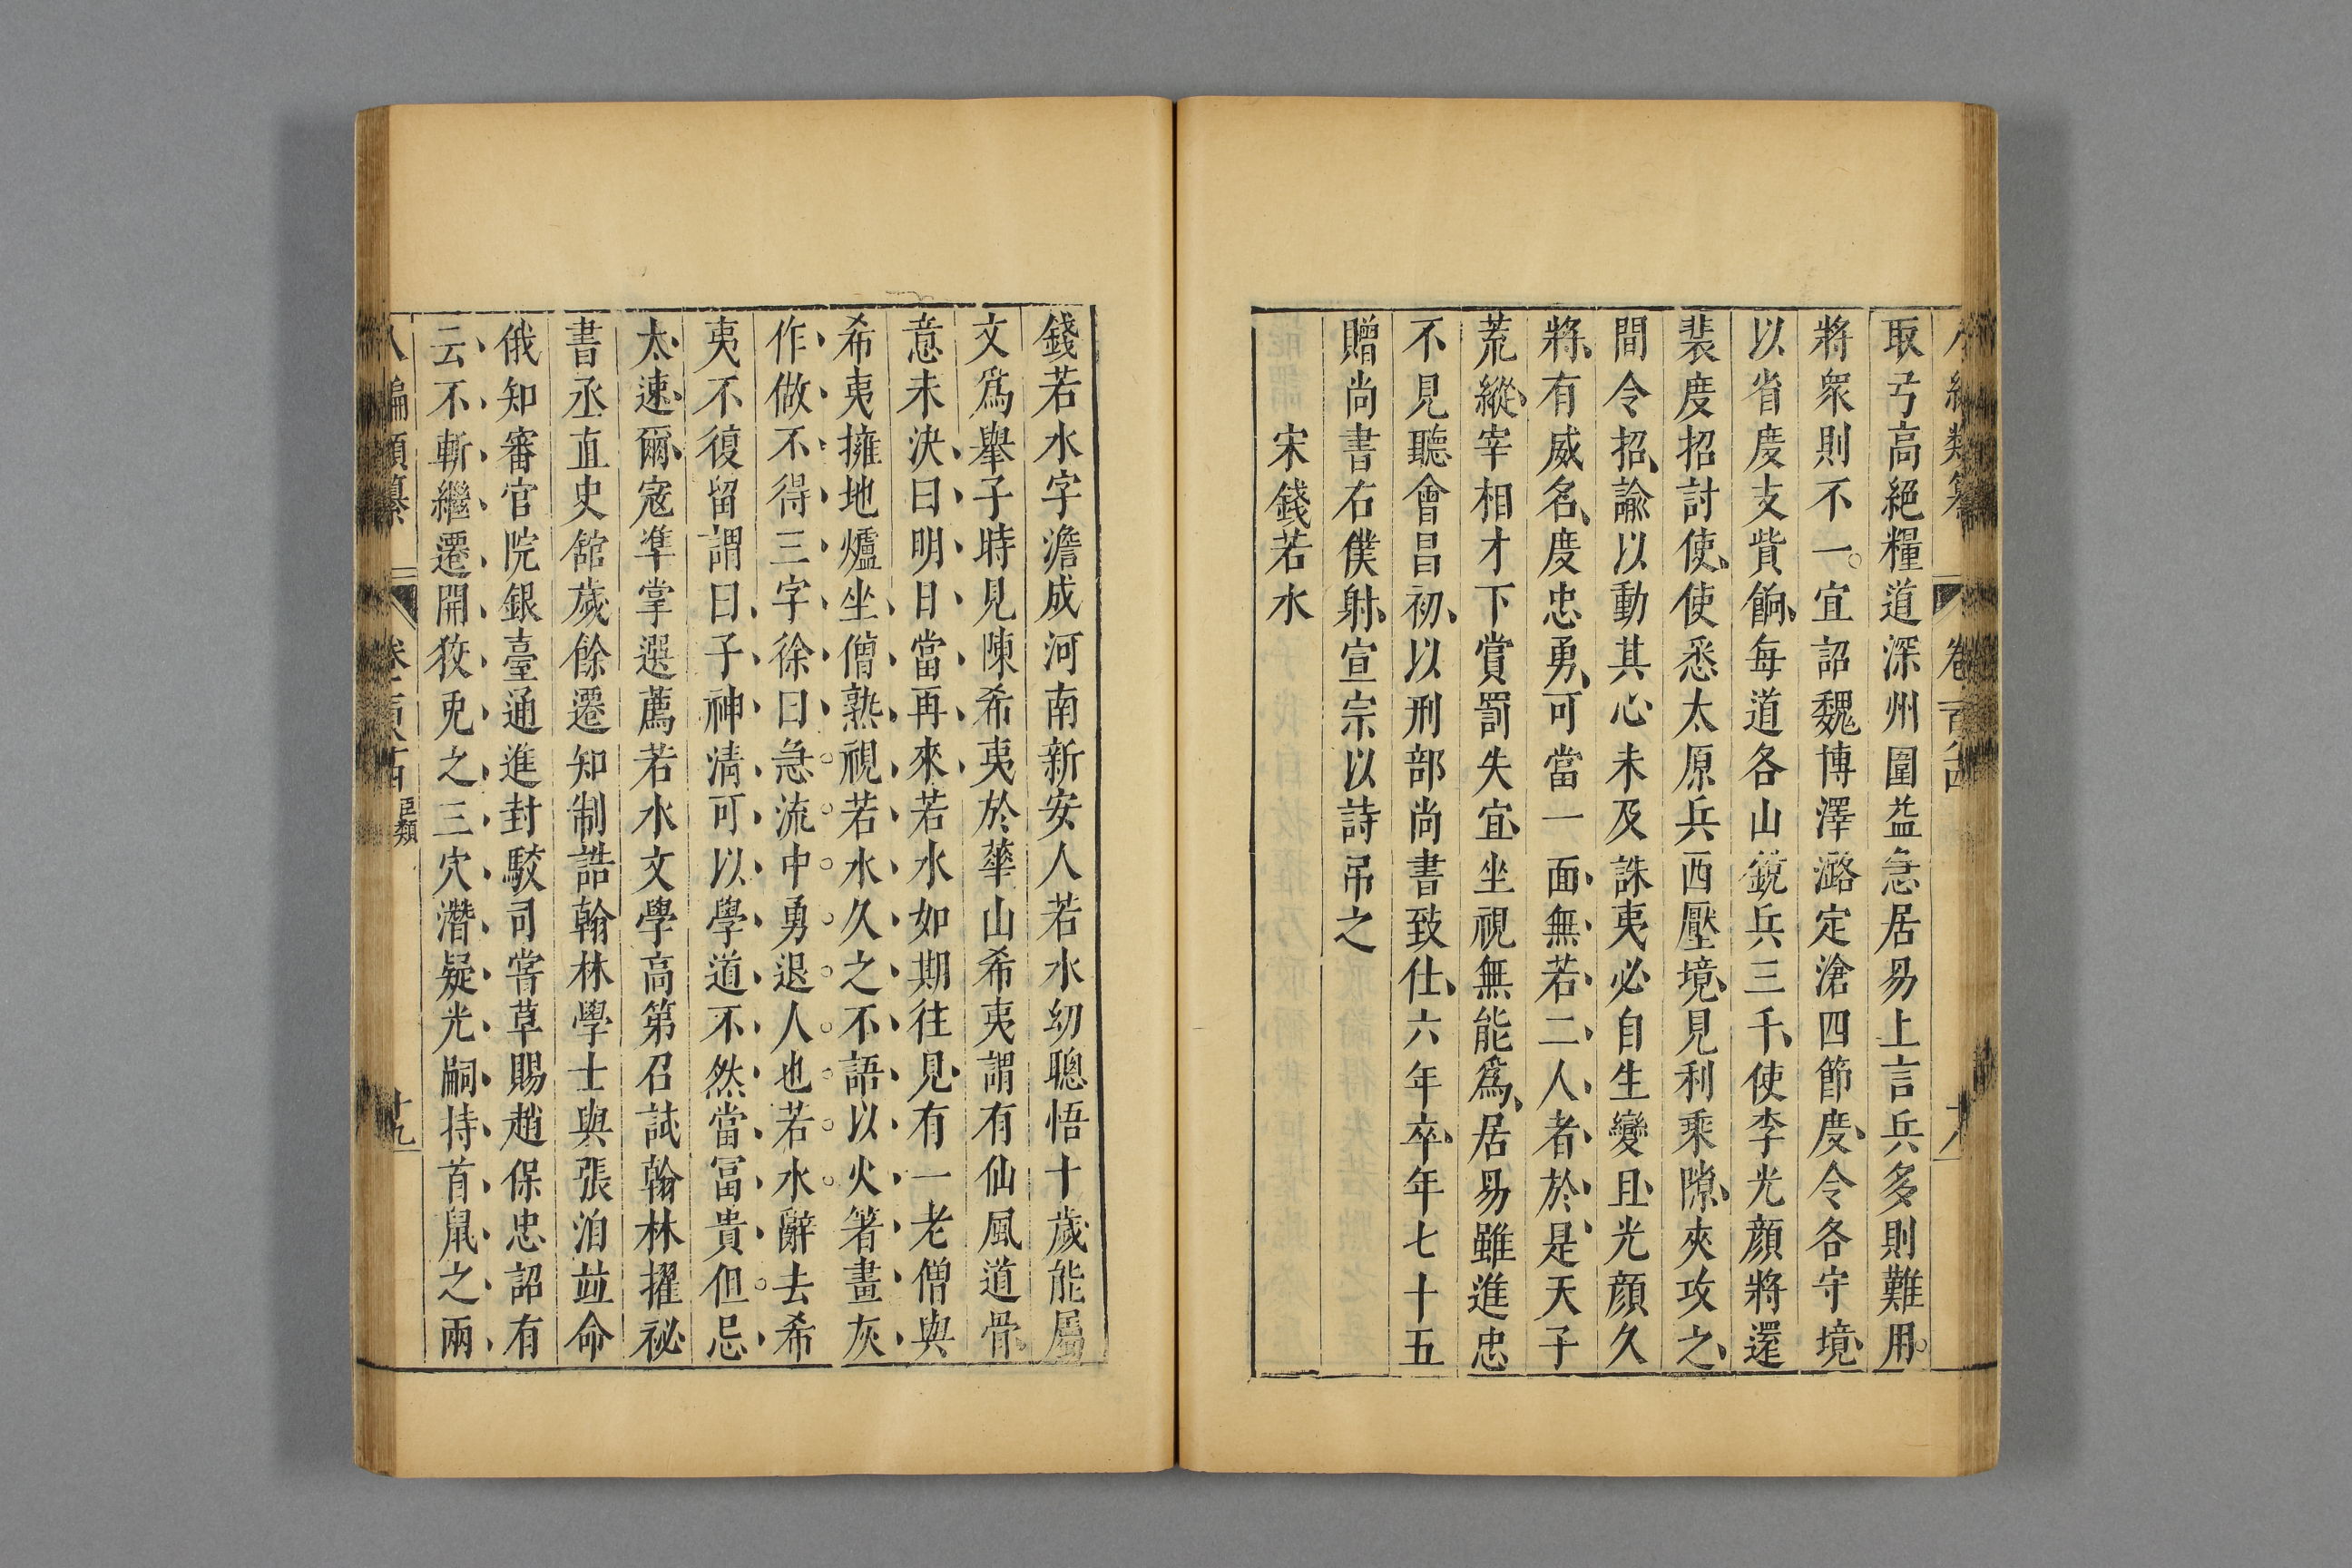 取弓高絕糧道深州圍益急居易上言兵多則難用
將衆則不一宜詔魏博澤潞定滄四節度令各守境
以省度支貲餉每道各山銳兵三千使李光顏將還
裴度招討使使悉太原兵西壓境見利乘隙夾攻之
間令招諭以動其心未及誅夷必自生變且光顏久
將有威名度忠勇可當一面無若二人者於是天子
荒縱宰相才下賞罰失宜坐視無能爲居易雖進忠
不見聽會昌初以刑部尚書致仕六年卒年七十五
贈尚書右僕射宣宗以詩吊之
宋錢若水
錢若水字澹成河南新安人若水幼聰悟十歲能屬
文爲舉子時見陳希夷於華山希夷謂有仙風道骨
意未決曰明日當再來若水如期往見有一老僧與
希夷擁地爐坐僧熟視若水久之不語以火箸畫灰
作做不得三字徐曰急流中勇退人也若水辭去希
夷不復留謂曰子神清可以學道不然當冨貴但忌
太速爾寇準掌選薦若水文學高第召試翰林擢祕
書丞直史舘歲餘遷知制誥翰林學士與張洎竝命
俄知審官院銀臺通進封駁司嘗草賜趙保忠詔有
云不斬繼遷開狡兎之三穴潛疑光嗣持首鼠之兩
編類纂
臣類
十九